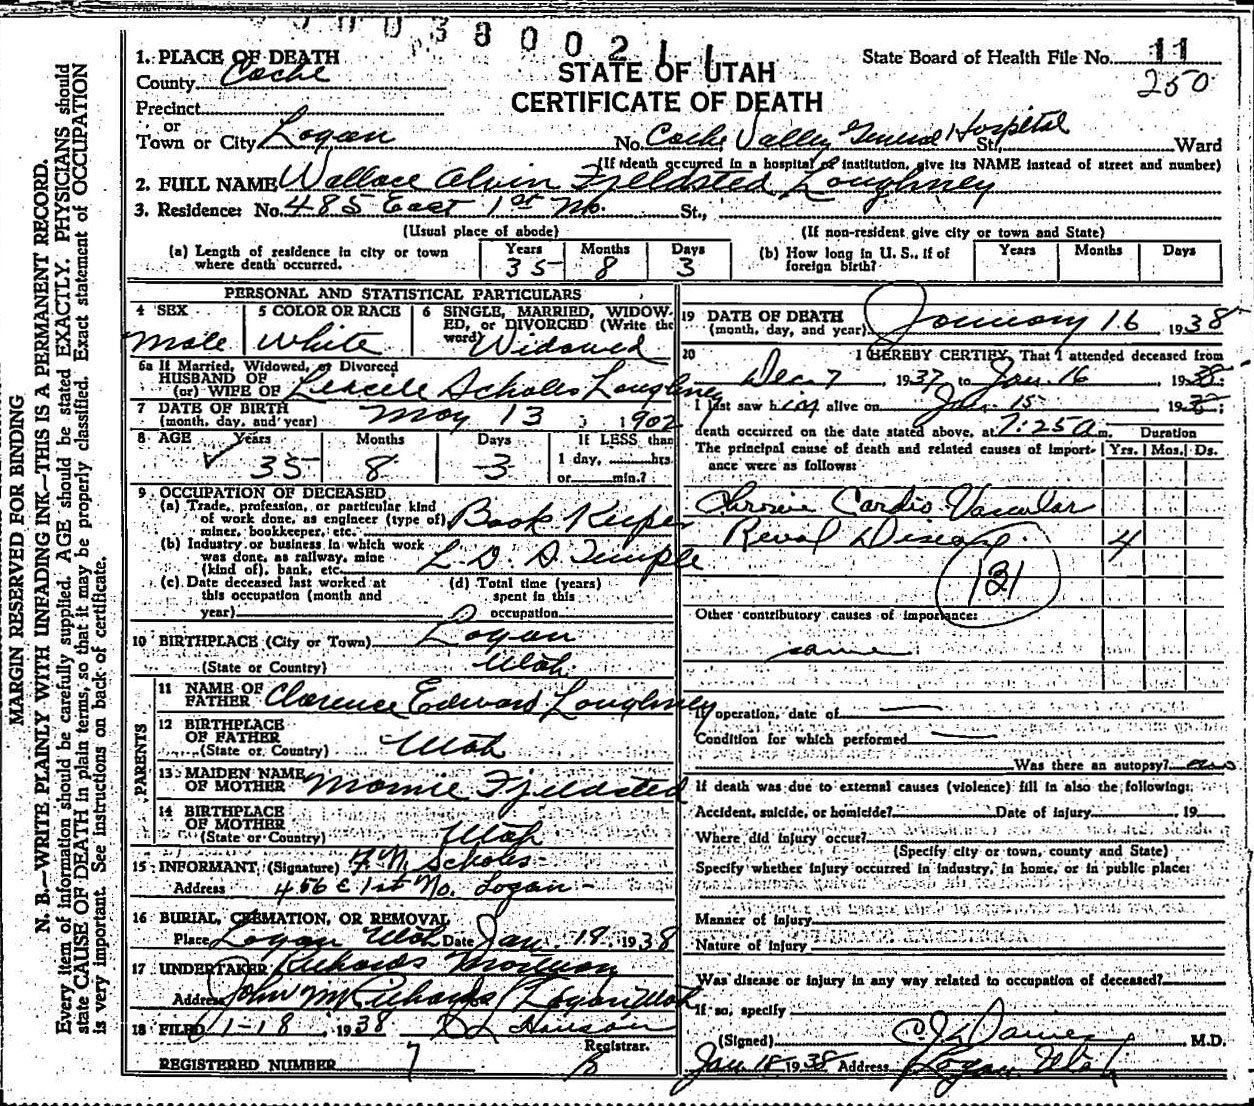 3800211
1. PLACE OF DEATH
County Cache
STATE OF UTAH
CERTIFICATE OF DEATH
State Board of Health File No. 11
250
Precinct
or
Town or City Logan No. Cache Valley General Hospital St., Ward
(If death occurred in a hospital or institution, give its NAME instead of street and number)
2. FULL NAME Wallace Alvin Fjeldsted Loughney
3. Residence: No. 485 East 1st No. St.,
(Usual place of abode) (If non-resident give city or town and State)
(a) Length of residence in city or town where death occurred. Years 35 Months 8 Days 3
(b) How long in U. S., if of foreign birth? Years Months Days
PERSONAL AND STATISTICAL PARTICULARS
4 SEX Male
5 COLOR OR RACE White
6 SINGLE, MARRIED, WIDOWED, or DIVORCED (Write the word) Widowed
6a If Married, Widowed, or Divorced
HUSBAND OF
(or) WIFE OF Scholes Loughney
7 DATE OF BIRTH
(month, day, and year) May 13 1902
8 AGE Years 35 Months 8 Days 3 If LESS than
1 day, hrs.
or min.?
9 OCCUPATION OF DECEASED
(a) Trade, profession, or particular kind
of work done, as engineer (type of)
miner, bookkeeper, etc. Book Keeper
(b) Industry or business in which work
was done, as railway, mine
(kind of), bank, etc. L. D. S. Temple
(c) Date deceased last worked at
this occupation (month and
year)
(d) Total time (years)
spent in this
occupation
10 BIRTHPLACE (City or Town) Logan
(State or Country) Utah
PARENTS
11 NAME OF
FATHER Clarence Edward Loughney
12 BIRTHPLACE
OF FATHER
(State or Country) Utah
13 MAIDEN NAME
OF MOTHER Mamie Fjeldsted
14 BIRTHPLACE
OF MOTHER
(State or Country) Utah
15 INFORMANT (Signature) F. N. Scholes
Address 456 E 1st No. Logan
16 BURIAL, CREMATION, OR REMOVAL
Place Logan Utah Date Jan. 18, 1938
17 UNDERTAKER Richards Mortuary
Address John M Richards Logan Utah
18 FILED 1-18, 1938 Hanson
Registrar.
REGISTERED NUMBER 7
19 DATE OF DEATH
(month, day, and year) January 16 1938
20 I HEREBY CERTIFY, That I attended deceased from
Dec 7 1937 to Jan. 16 1938;
I last saw him alive on Jan. 15 1938;
death occurred on the date stated above, at 7:25 a m. Duration
The principal cause of death and related causes of importance were as follows: Yrs. Mos. Ds.
Chronic Cardio Vascular
Renal Disease. 4
131
Other contributory causes of importance:
same
If operation, date of —
Condition for which performed —
Was there an autopsy?
If death was due to external causes (violence) fill in also the following:
Accident, suicide, or homicide? Date of injury , 19
Where did injury occur?
(Specify city or town, county and State)
Specify whether injury occurred in industry, in home, or in public place:
Manner of injury
Nature of injury
Was disease or injury in any way related to occupation of deceased?
If so, specify
(Signed) M.D.
Jan. 18 1938 Address Logan, Utah
MARGIN RESERVED FOR BINDING
N. B.—WRITE PLAINLY WITH UNFADING INK—THIS IS A PERMANENT RECORD.
Every item of information should be carefully supplied. AGE should be stated EXACTLY. PHYSICIANS should
state CAUSE OF DEATH in plain terms, so that it may be properly classified. Exact statement of OCCUPATION
is very important. See instructions on back of certificate.